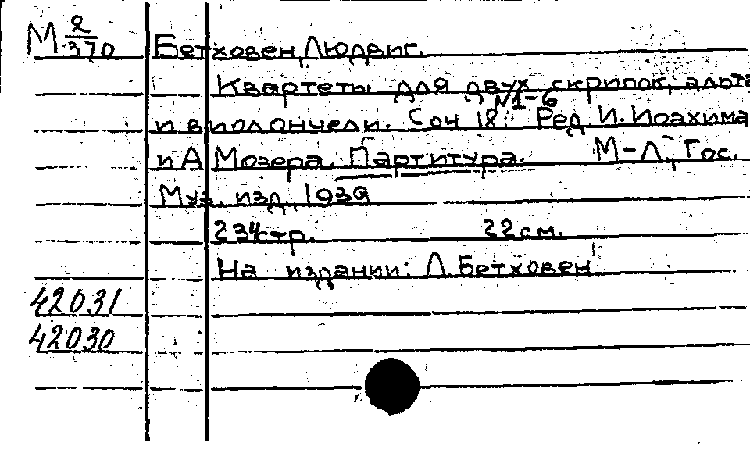 М 2/370 Бетховен, Людвиг.
Квартеты для двух скрипок, альта
и виолончели. Соч 18. №1-6 Ред. И. Иоахима
и А Мозера. Партитура. М-Л, Гос.
Муз. изд, 1939
234стр. 22см.
На издании: Л. Бетховен
42031
42030